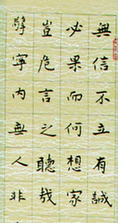 無信不立有誠
必果而何想家
豈危言之聽哉
寧內無人非